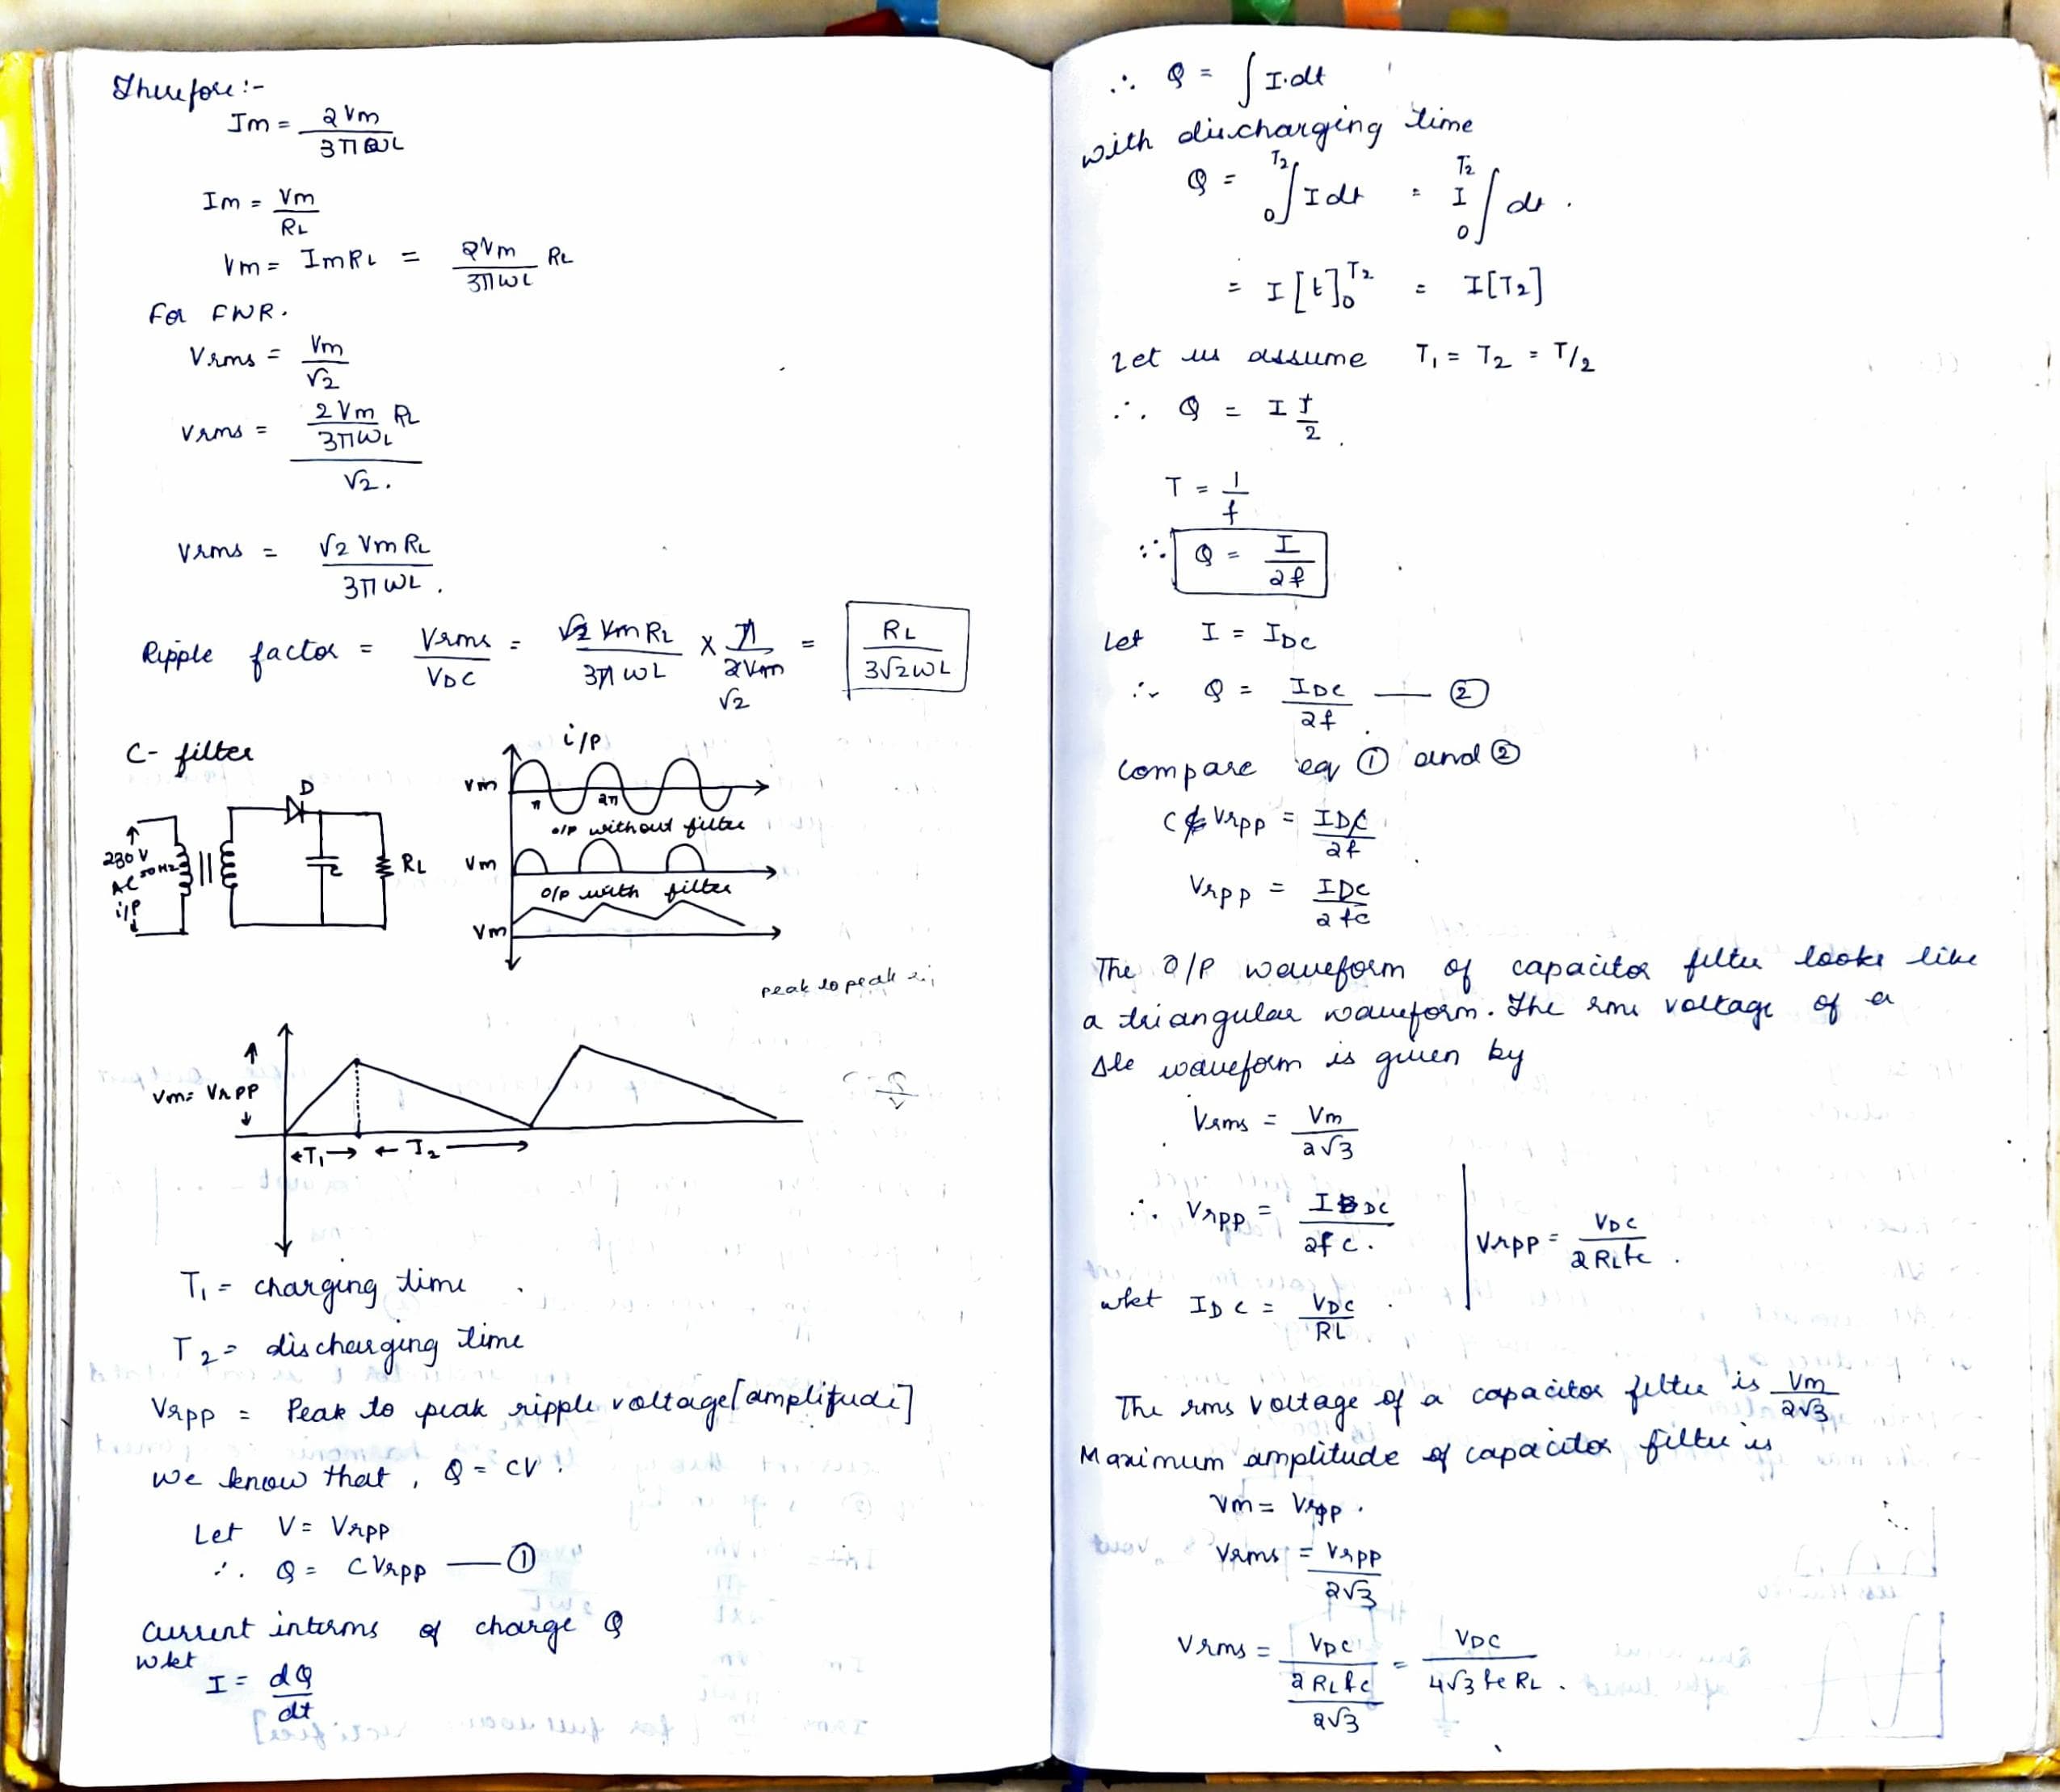 Therefore:-
Im = 2Vm / 3πωL
Im = Vm / RL
Vm = ImRL = 2Vm / 3πωL RL
For FWR.
Vrms = Vm / √2
Vrms = 2Vm / 3πωL RL / √2.
Vrms = √2 Vm RL / 3πωL.
Ripple factor = Vrms / VDC = √2 Vm RL / 3πωL × π / 2Vm √2 = RL / 3√2ωL
C- filter
i/P
D
230V
AC 50Hz
i/P
C
RL
Vm
π 2π
o/p without filter
Vm
O/P with filter
Vm
peak to peak
Vm = Vrpp
←T1→ ← T2 →
T1 = charging time
T2 = discharging time
Vrpp = Peak to peak ripple voltage [amplitude]
We know that, Q = CV.
Let V = Vrpp
∴ Q = CVrpp — ①
Current interms of charge Q
wkt
I = dQ / dt
∴ Q = ∫ I.dt
with discharging time
Q = 0∫T2 I dt = I 0∫T2 dt.
= I[t]0T2 = I[T2]
Let us assume T1 = T2 = T/2
∴ Q = I T/2.
T = 1/f
∴ Q = I / 2f
Let I = IDC
∴ Q = IDC / 2f — ②
Compare eq ① and ②
C Vrpp = IDC / 2f
Vrpp = IDC / 2fc
The O/P waveform of capacitor filter looks like
a triangular waveform. The rms voltage of a
Δle waveform is given by
Vrms = Vm / 2√3
∴ Vrpp = IDC / 2fc.
Vrpp = VDC / 2RLfc.
wkt IDC = VDC / RL.
The rms voltage of a capacitor filter is Vm / 2√3
Maximum amplitude of capacitor filter is
Vm = Vrpp.
Vrms = Vrpp / 2√3
Vrms = VDC / 2RLfc / 2√3 = VDC / 4√3 fc RL.